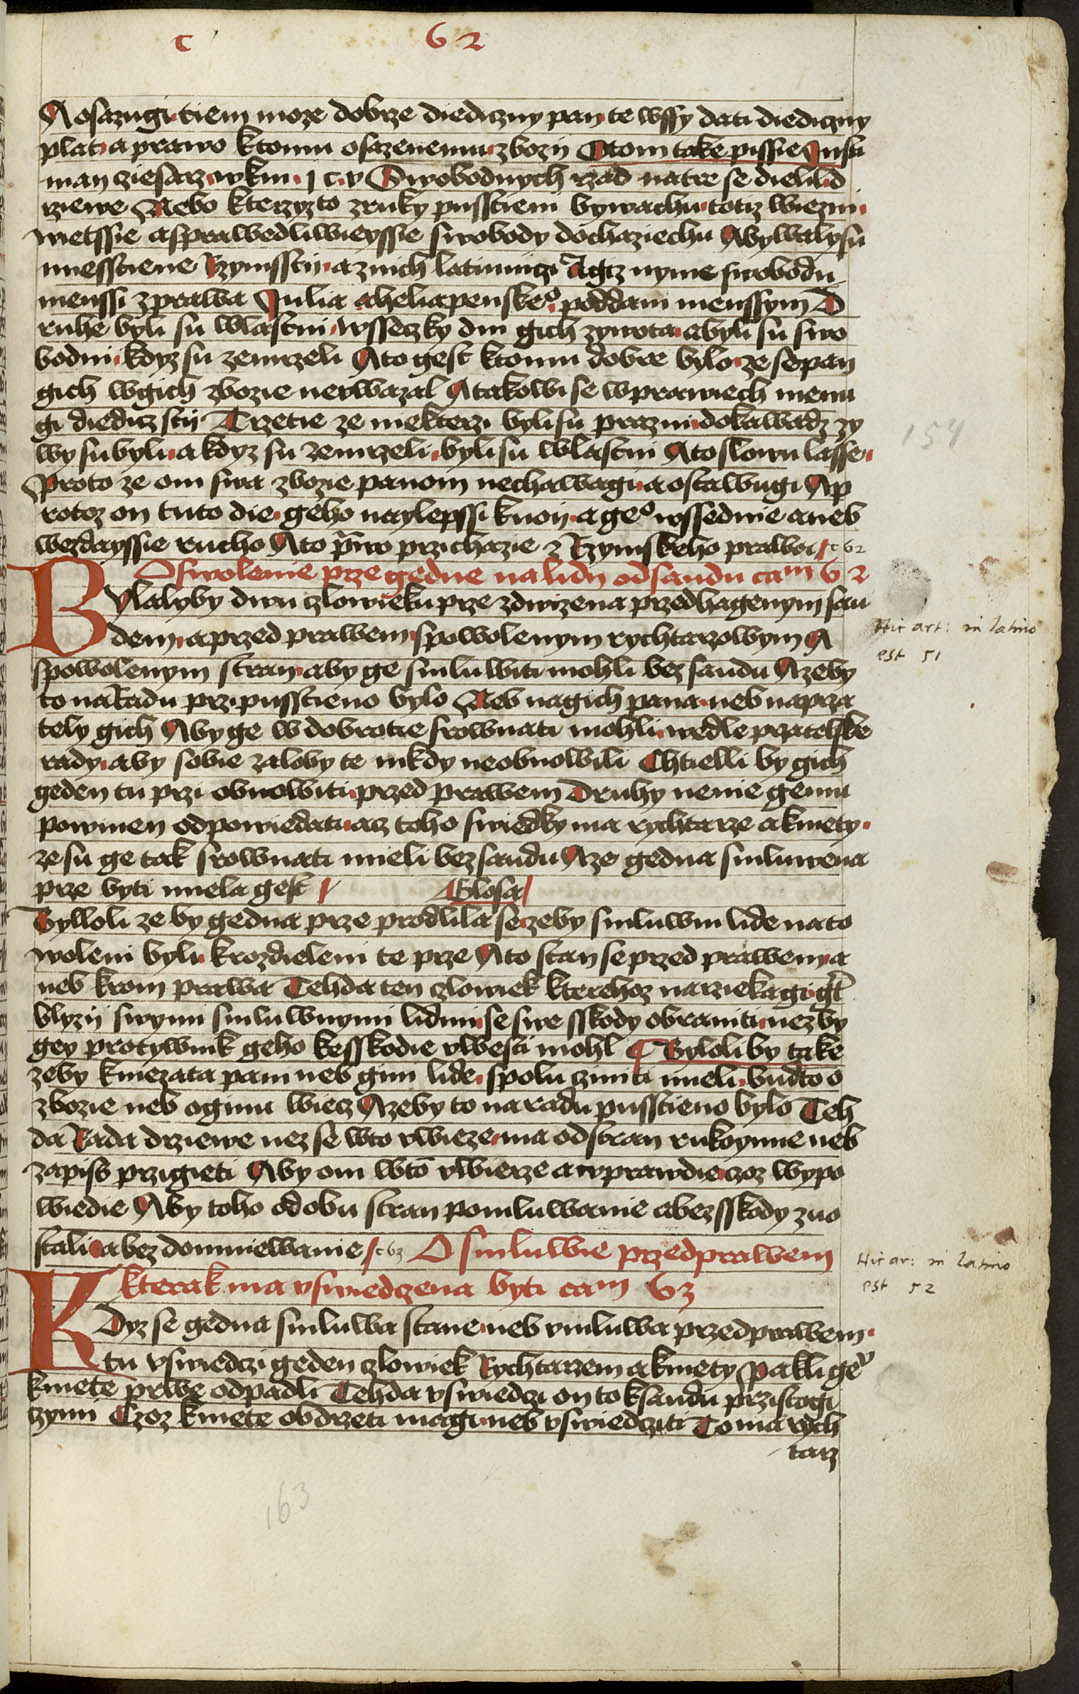 c 62
A osazugi tiem moze dobrze diediczny pan te wssy dati diediczny
plat a prawo ktomu osazenemu zbozij O tom take pissie Jusu
man ciesarz wkni j c v Swobodnych rzad natre se dielil d
rziewe Nebo kterzyzto zruky pussczieni bywachu totiz wiezni
wietssie a sprawedliwieyssie swobody dochaziechu A bywaly su
miessczene Rzymssczij a z nich latinniczi Agiz nyme swobodu
menssi z prawa Julia aheliapenske° poddani menssym D
ruhe byli su wlastni wsseczky dni gich zywota a byli su swo
bodni kdyz su zemrzeli A to gest ktomu dobre bylo ze se pan
gich w gich zbozie neuwazal A takowi se w prawiech menu
gi diediczstij Trzetie ze niekterzi byli su prazni dokawadz zy
wy su byli a kdyz su zemrzeli byli su wlastni A to slowu lasse
Proto ze oni swa zbozie panom nechawagi a ostawugi A p
rotoz on tuto die geho naylepssi kuon a ge° wssednie a neb
wezdayssie rucho A to prwo przichazie z Rzymskeho prawa c 62
O swolenie prze gedne na lidu od saudu cam 62
Bylalyby dwu czlowieku prze zdwizena przed hagenym sau
dem a przed prawem s powolenym rychtarzowym A
s powolenym stran aby ge smluwiti mohli bez saudu A zeby
to na Radu przipussczieno bylo Neb na gich pana neb na prza
tely gich Aby ge w dobrotie srownati mohli wedle przatelske
rady aby sobie zaloby te nikdy neobnowili Chtielli by gich
geden tu przi obnowiti przed prawem Druhy nenie gemu
powinen odpowiedati acz toho swiedky ma rychtarze a kmety
ze su ge tak srownati mieli bez saudu A ze gedna smluwena
prze byti miela gest Glosa
Bylloli ze by gedna prze prodlila se zeby smluwni lide na to
woleni byli k rozdieleni te prze A to stan se przed prawem a
neb krom prawa Tehda ten czlowiek kterehoz narzieka gi gt
blyzij swymi smluwnymi lidmi se swe sskody obraniti nez by
gey protywnik geho ke sskodie vwesti mohl Byloliby take
zeby kniezata pani neb gini lide spolu ziniti mieli budto o
zbozie neb o ginu wiecz A zeby to na radu pussczieno bylo Teh
da Rada drziewe nez se w to vwieze ma od stran rukoymie neb
zapisb przigieti Aby oni w to vwierze a w prawdie czoz wypo
wiedie Aby toho od obu stran pomluwanie a bez sskody zuo
stali a bez domniewanie c 63 O smluwie przed prawem
kterak ma vswiedczena byti cam 63
Kdyz se gedna smluwa stane neb vmluwa przed prawem
tu vswiedczi geden czlowiek Rychtarzem a kmety Pakli ge°
kmete prwe odpadli Tehda vswiedczi on to k saudu przistogi
czymi Czoz kmete obdrzeti magi neb vswiedcziti To ma rych
tarz
154
Hic art: in latino
est 51
Hic ar: in latino
est 52
163